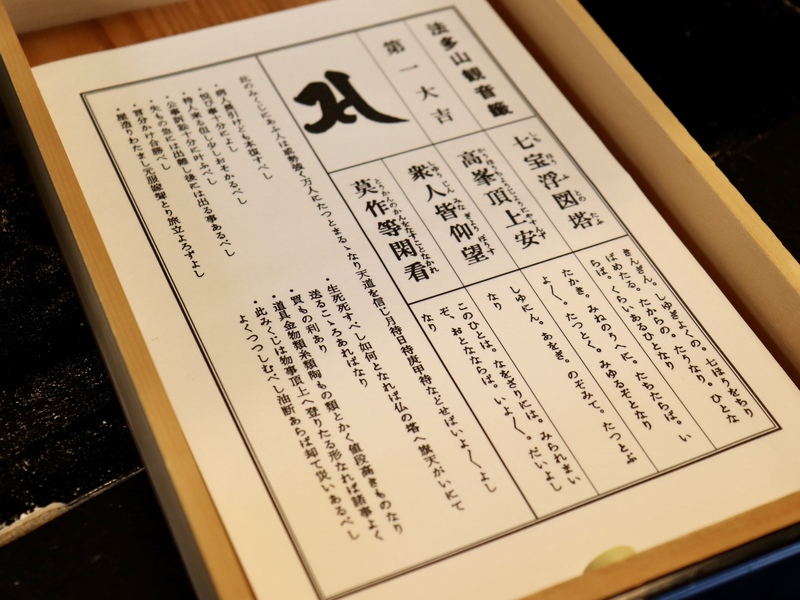 法多山観音籤
第一大吉
七宝浮図塔
高峯頂上安
衆人皆仰望
莫作等閑看
きんぎん。しゅぎょくの。七ほうをちり
ばめたる。たからの。たりなり。ひとな
らば。くらいあるひとなり
たかき。みねのうへに。たちたらば。い
よ〳〵。たつとく。みゆるぞとなり
しゅにん。あをぎ。のぞみて。たつとぶ
なり
このひとは。なをざりには。みられまい
ぞ。おとなならば。いよ〳〵。だいよし
なり
此のみくじにあふ人は威勢強く万人にたつとまるゝなり天道を信じ月待日待庚申待などせばいよ〳〵よし
・病人長引けども本復すべし
・悦び事十分によし
・待人来る但し少しおそかるべし
・公事訴訟十分に叶ふべし
・失もの急には出難し後には出る事あるべし
・買分かけ合勝べし
・屋造りわたまし元服嫁娶とり旅立よろずよし
・生死死すべし如何となれば仏の塔へ旗天がいにて
送るこゝろあればなり
・買もの利あり
・道具金物類糸類陶もの類とかく値段高きものなり
・此みくじは物事頂上へ登りたる形なれば諸事よく
よくつつしむべし油断あらば却て災いあるべし